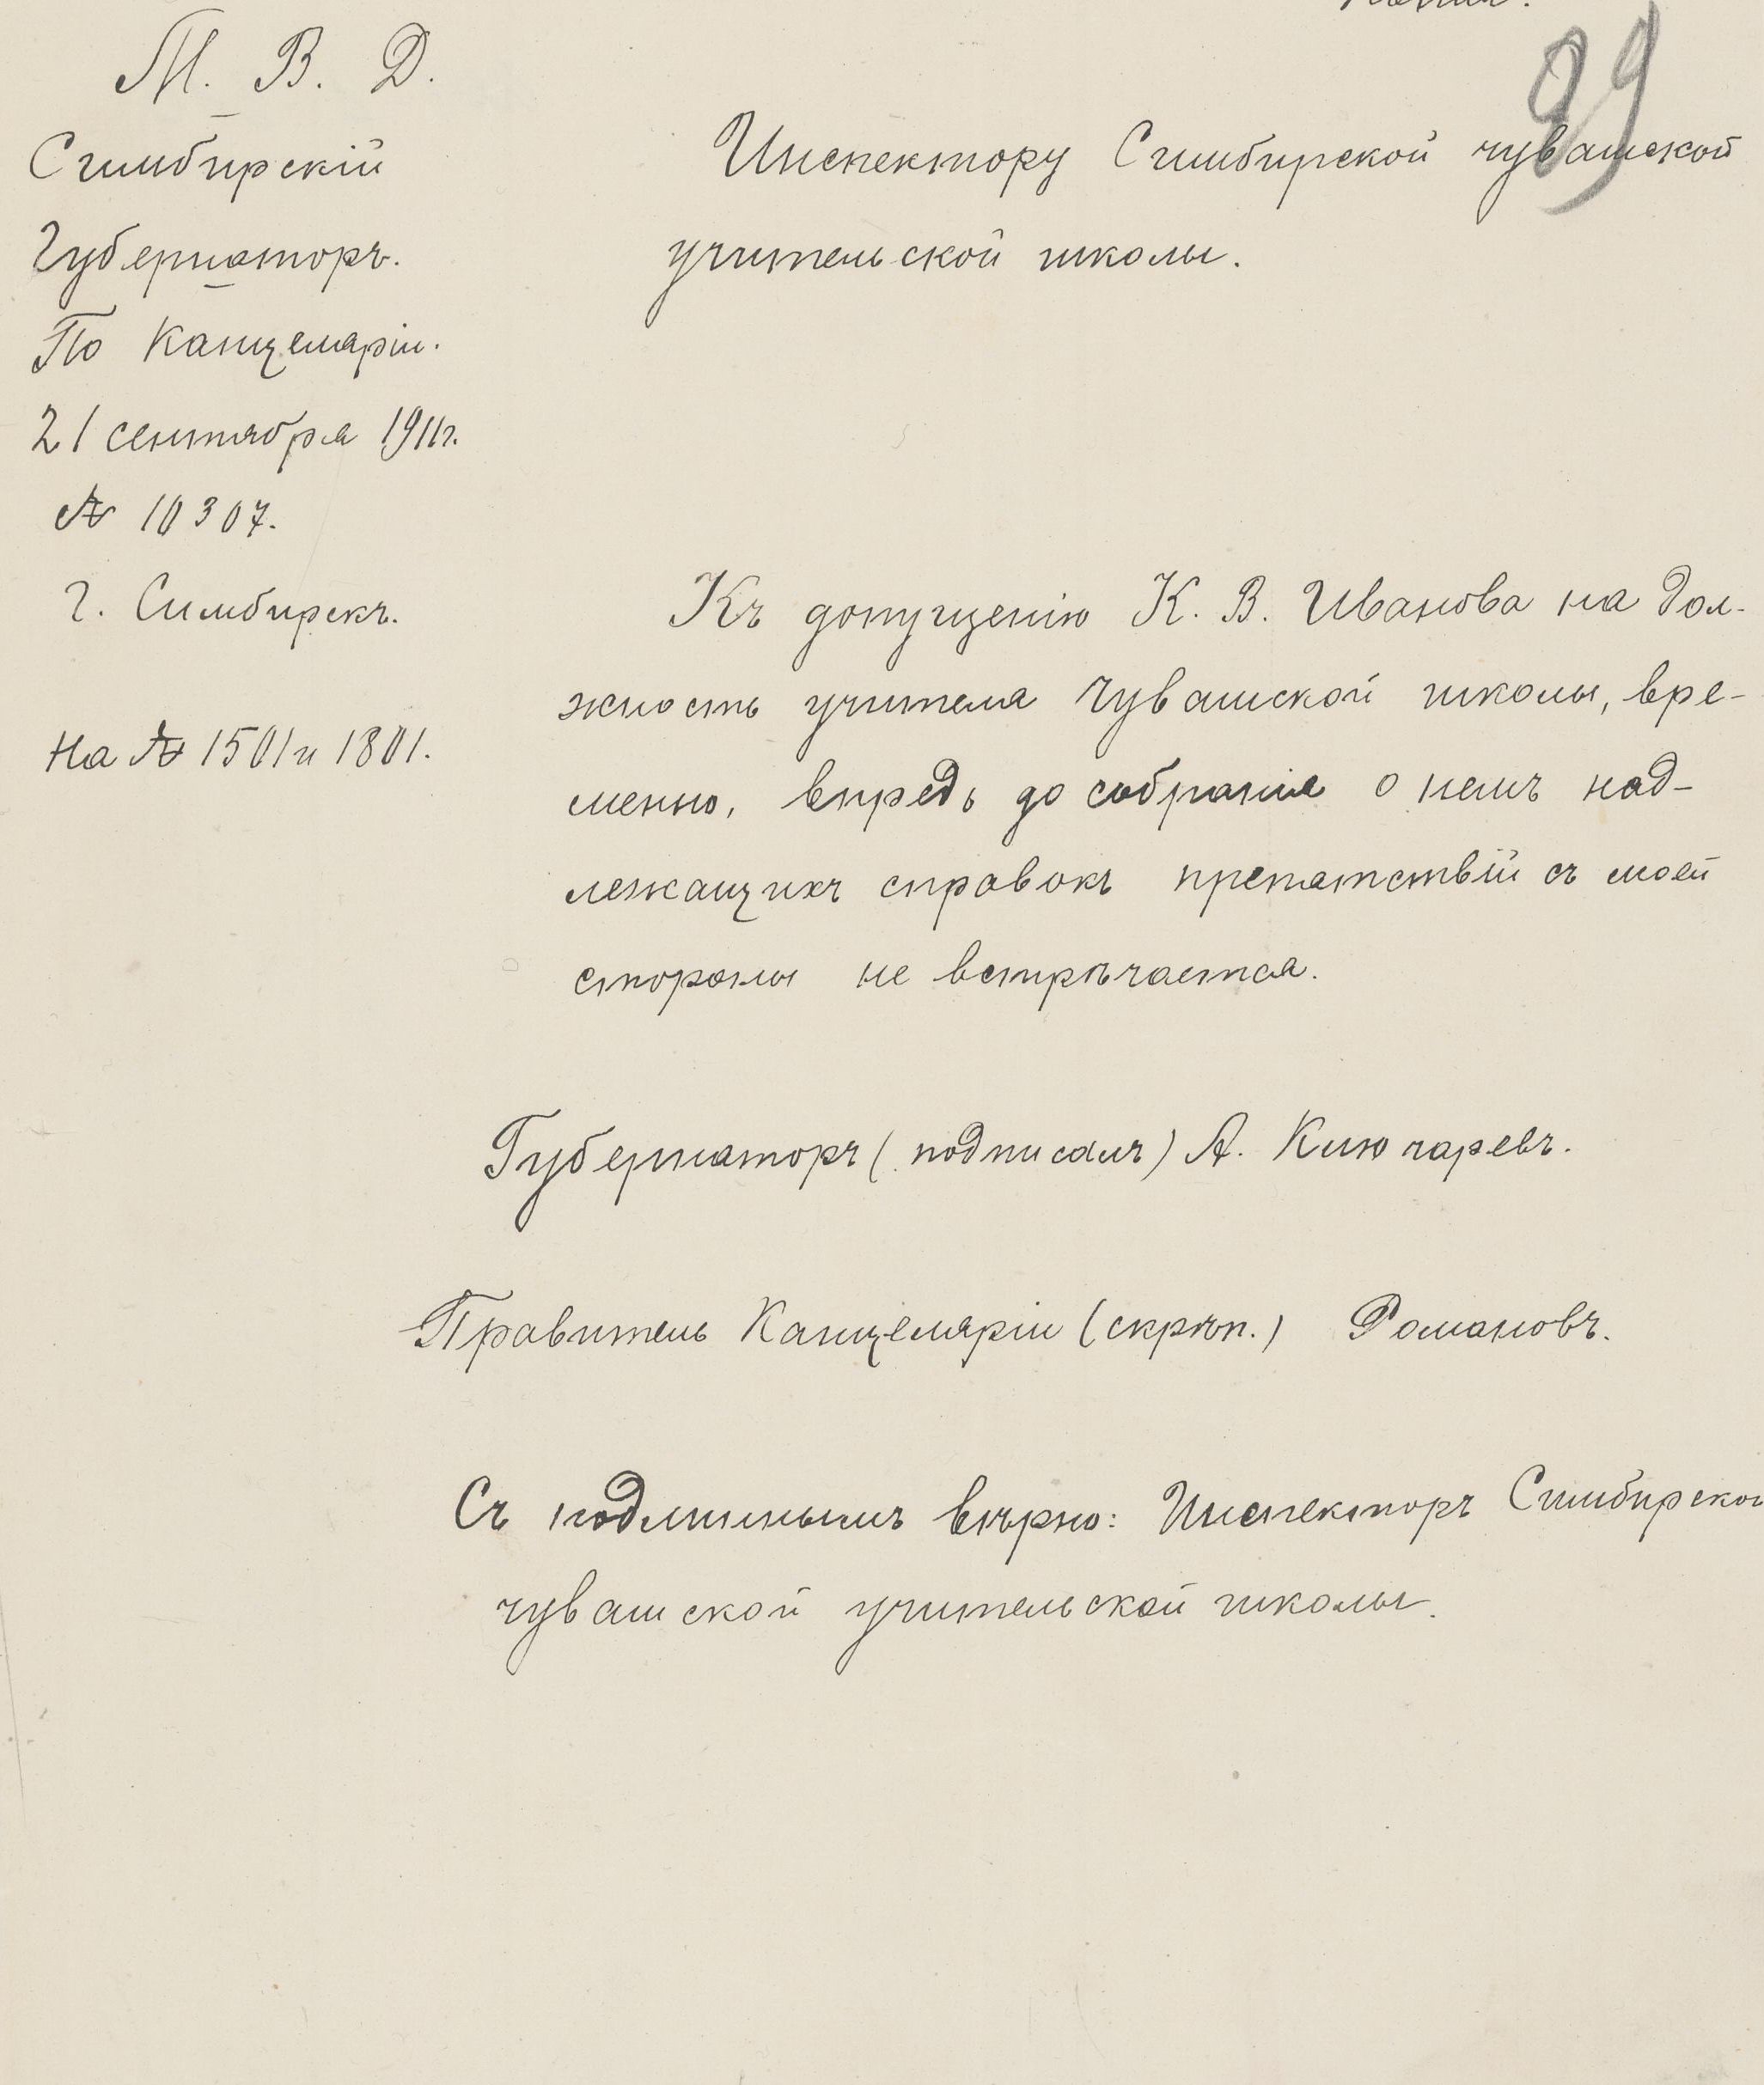 89
М. В. Д.
Симбирскій
Губернаторъ.
По Канцеляріи.
21 сентября 1911г.
№ 10307.
г. Симбирскъ.
На № 1501 и 1801.
Инспектору Симбирской чувашской
учительской школы.
Къ допущенію К. В. Иванова на дол-
жность учителя Чувашской школы, вре-
менно, впредь до собранія о немъ над-
лежащихъ справокъ препятствій съ моей
стороны не встрѣчается.
Губернаторъ (подписалъ) А. Ключаревъ.
Правитель Канцеляріи (скрѣп.) Романовъ.
Съ подлиннымъ вѣрно: Инспекторъ Симбирской
чувашской учительской школы.